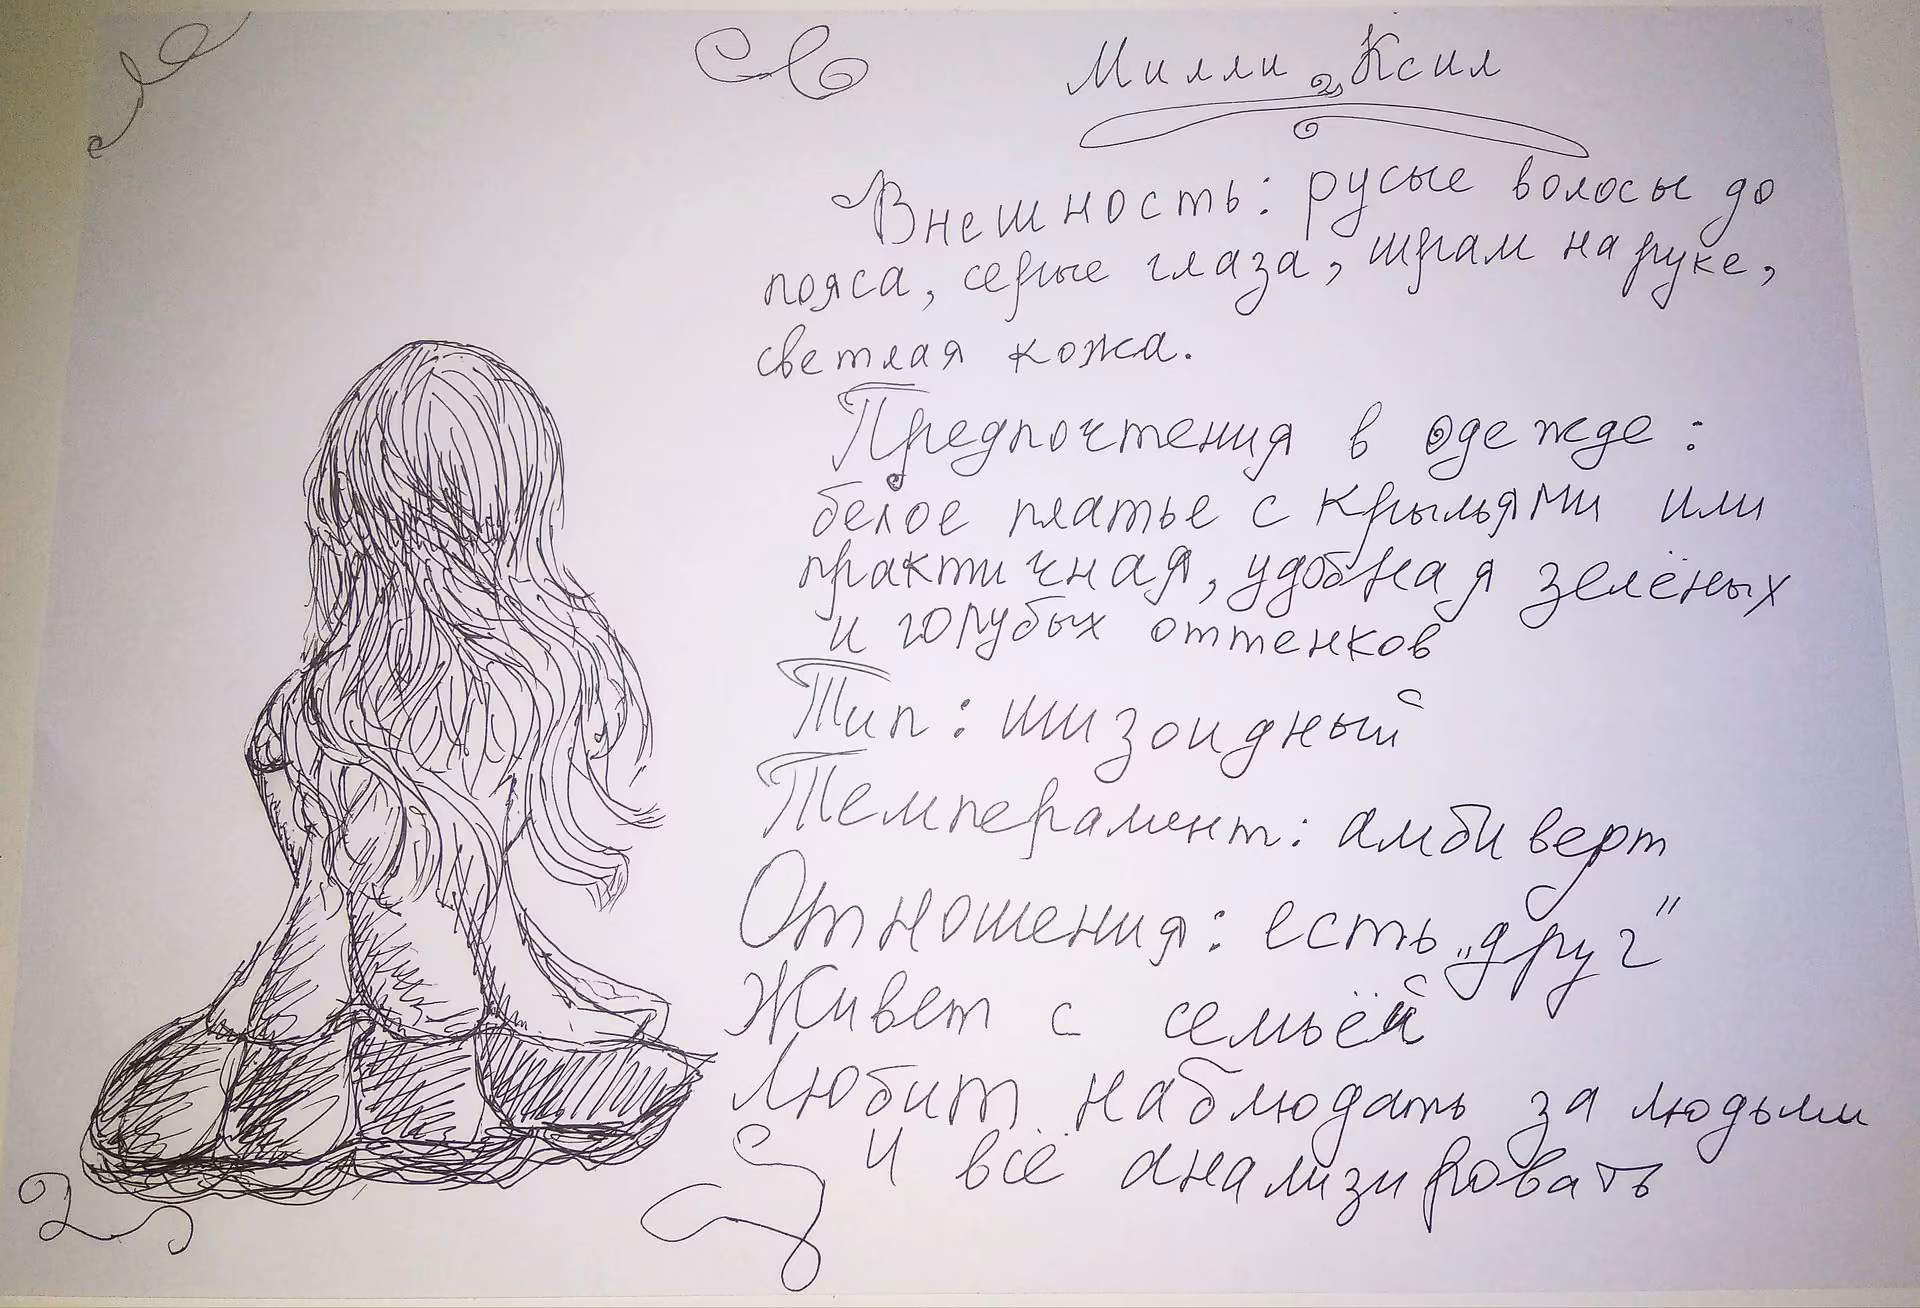 Милли Ксил
Внешность: русые волосы до
пояса, серые глаза, шрам на руке,
светлая кожа.
Предпочтения в одежде:
белое платье с крыльями или
практичная, удобная зелёных
и голубых оттенков
Тип: шизоидный
Темперамент: амбиверт
Отношения: есть „друг"
Живет с семьёй
Любит наблюдать за людьми
и всё анализировать